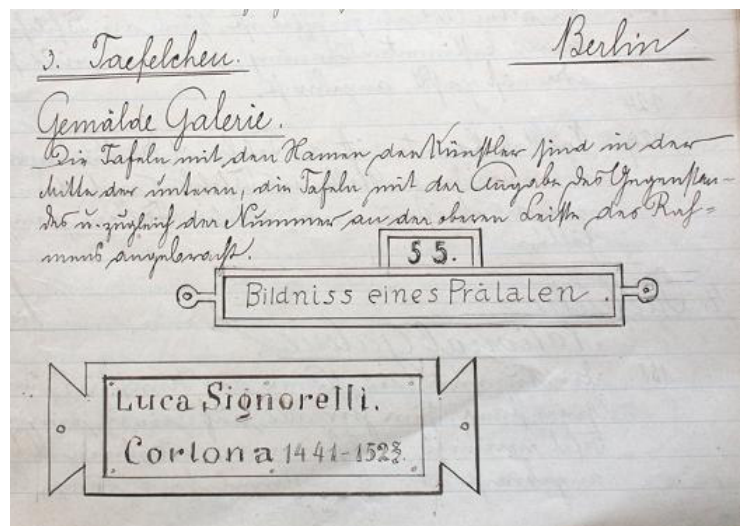 3. Taefelchen.
Berlin
Gemälde Galerie.
Die Tafeln mit den Namen der Künstler sind in der
Mitte der unteren, die Tafeln mit der Angabe des Gegenstan-
des u. zugleich der Nummer an der oberen Leiste des Rah-
mens angebracht.
55.
Bildniss eines Prälaten.
Luca Signorelli.
Cortona 1441-1523.